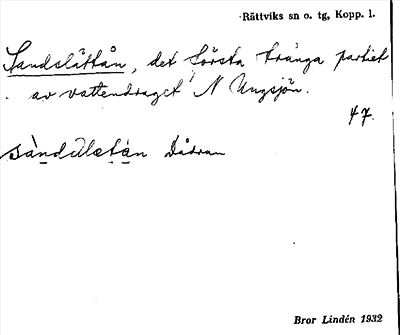 Rättviks sn o. tg, Kopp. l.
Sandslättån, det första trånga partiet
av vattendraget N Ungsjön.
47.
Dådran
Bror Lindén 1932